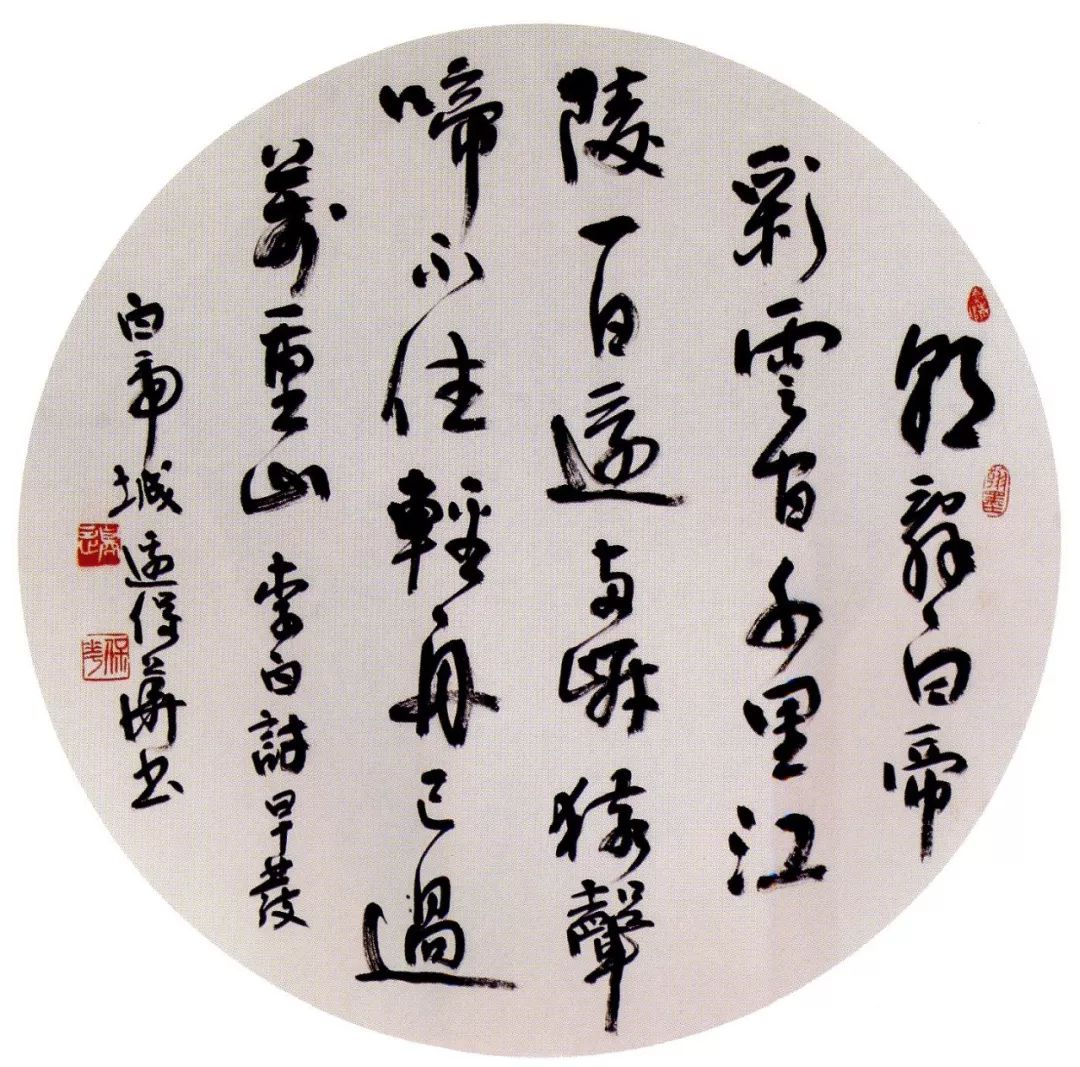 朝辭白帝
彩雲間千里江
陵一日還兩岸猿聲
啼不住輕舟已過
萬重山 李白詩早發
白帝城 保華書
翰墨
保華